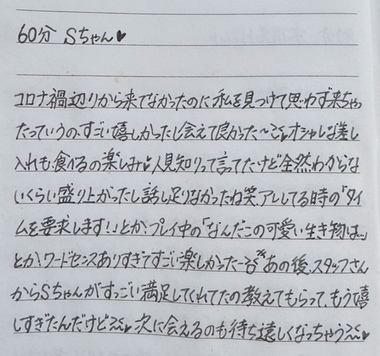 60分 Sちゃん♥
コロナ禍辺りから来てなかったのに私を見つけて思わず来ちゃ
ったっていうの、すごい嬉しかったし会えて良かった〜♡オシャレな差し
入れも食べるの楽しみ♥人見知りって言ってたけど全然わからな
いくらい盛り上がったし話し足りなかったね笑、アレしてる時の「タイ
ムを要求します!」とか、プレイ中の「なんだこの可愛い生き物は…」
とか、ワードセンスありすぎてすごい楽しかった〜 あの後、スタッフさん
からSちゃんがすっごい満足してくれてたの教えてもらって、もう嬉
しすぎたんだけど 次に会えるのも待ち遠しくなっちゃう